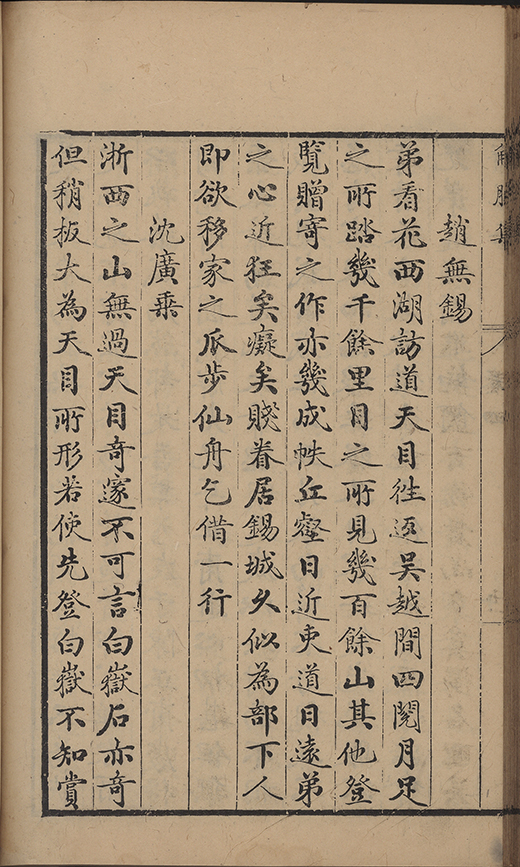 解脫集
趙無錫
弟看花西湖訪道天目徃返吳越間四閱月足
之所踏幾千餘里目之所見幾百餘山其他登
覽贈寄之作亦幾成帙丘壑日近吏道日遠弟
之心近狂矣癡矣賤眷居錫城久似為部下人
即欲移家之瓜步仙舟乞借一行
沈廣乘
浙西之山無過天目奇邃不可言白嶽石亦奇
但稍板大為天目所形若使先登白嶽不知賞